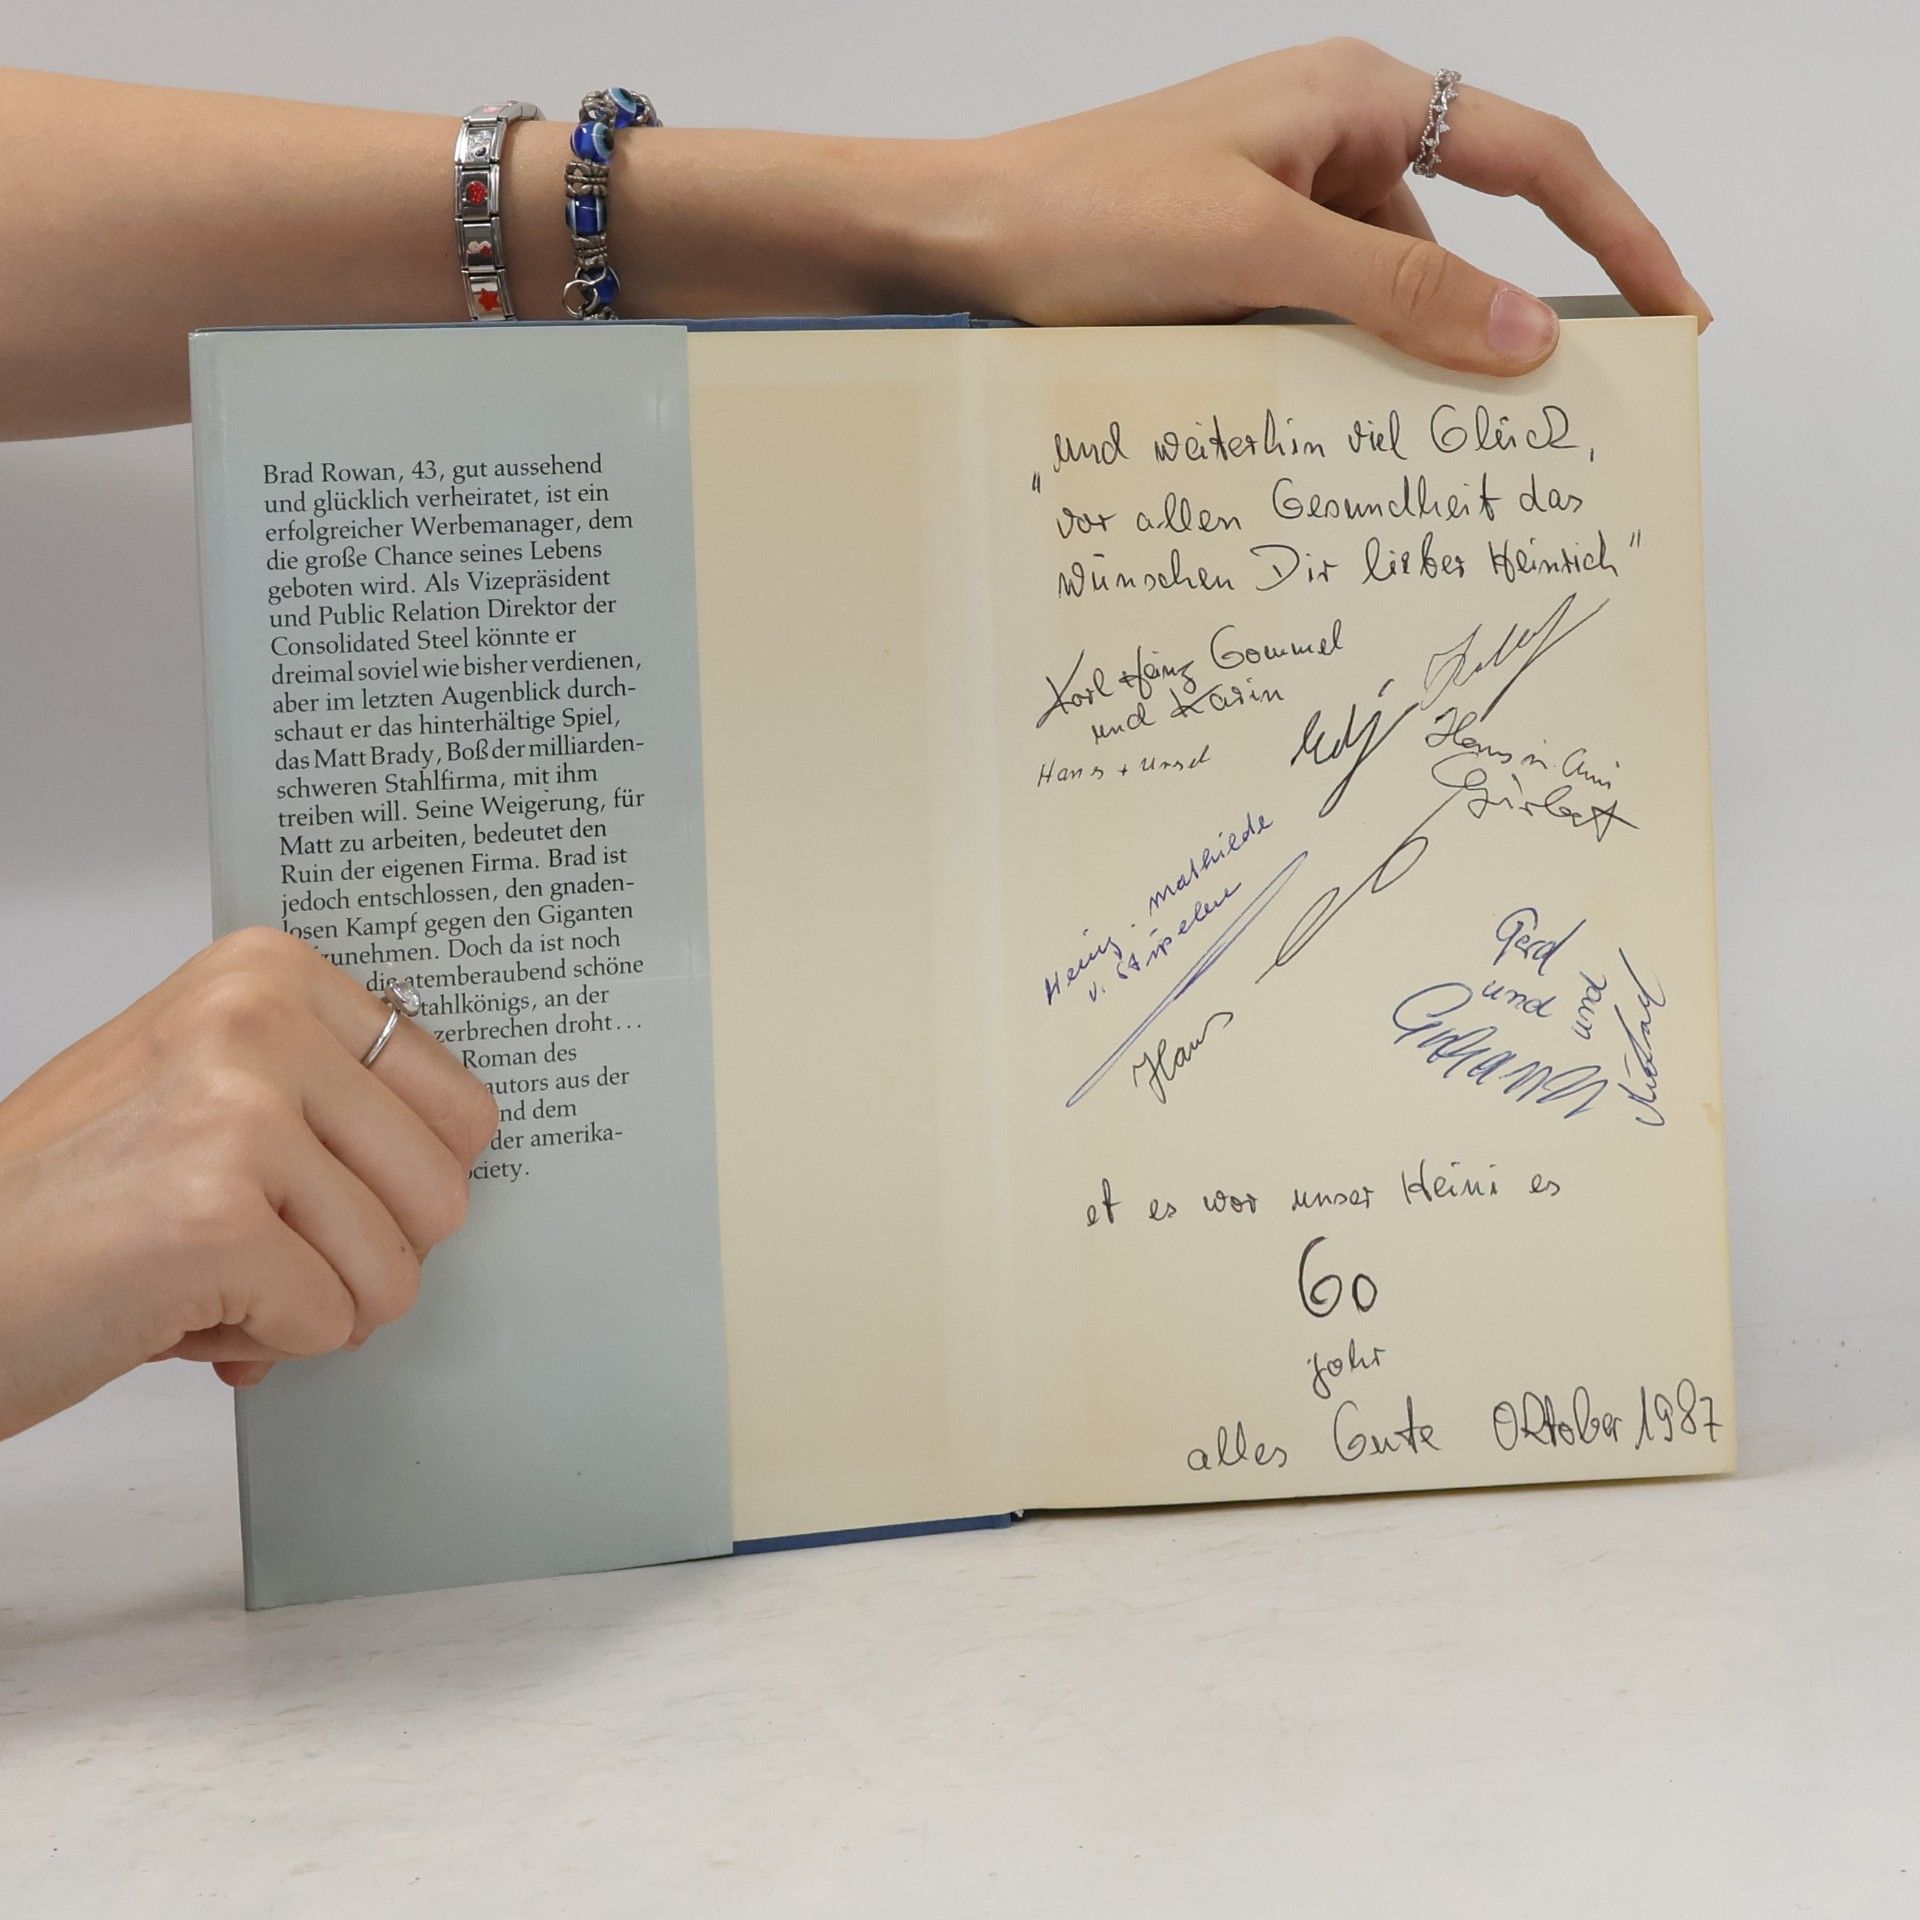 Brad Rowan, 43, gut aussehend
und glücklich verheiratet, ist ein
erfolgreicher Werbemanager, dem
die große Chance seines Lebens
geboten wird. Als Vizepräsident
und Public Relation Direktor der
Consolidated Steel könnte er
dreimal soviel wie bisher verdienen,
aber im letzten Augenblick durch-
schaut er das hinterhältige Spiel,
das Matt Brady, Boß der milliarden-
schweren Stahlfirma, mit ihm
treiben will. Seine Weigerung, für
Matt zu arbeiten, bedeutet den
Ruin der eigenen Firma. Brad ist
jedoch entschlossen, den gnaden-
losen Kampf gegen den Giganten
zunehmen. Doch da ist noch
die atemberaubend schöne
tahlkönigs, an der
zerbrechen droht...
Roman des
autors aus der
nd dem
der amerika-
ociety.
"und weiterhin viel Glück,
vor allen Gesundheit das
wünschen Dir lieber Heinrich"
Karl Heinz Gommel
und Karin
Hans + Ursel
Hans
Heinz. Mathilde
Hans
Gerd
und
und
et es wor unser Heini es
60
johr
alles Gute Oktober 1987